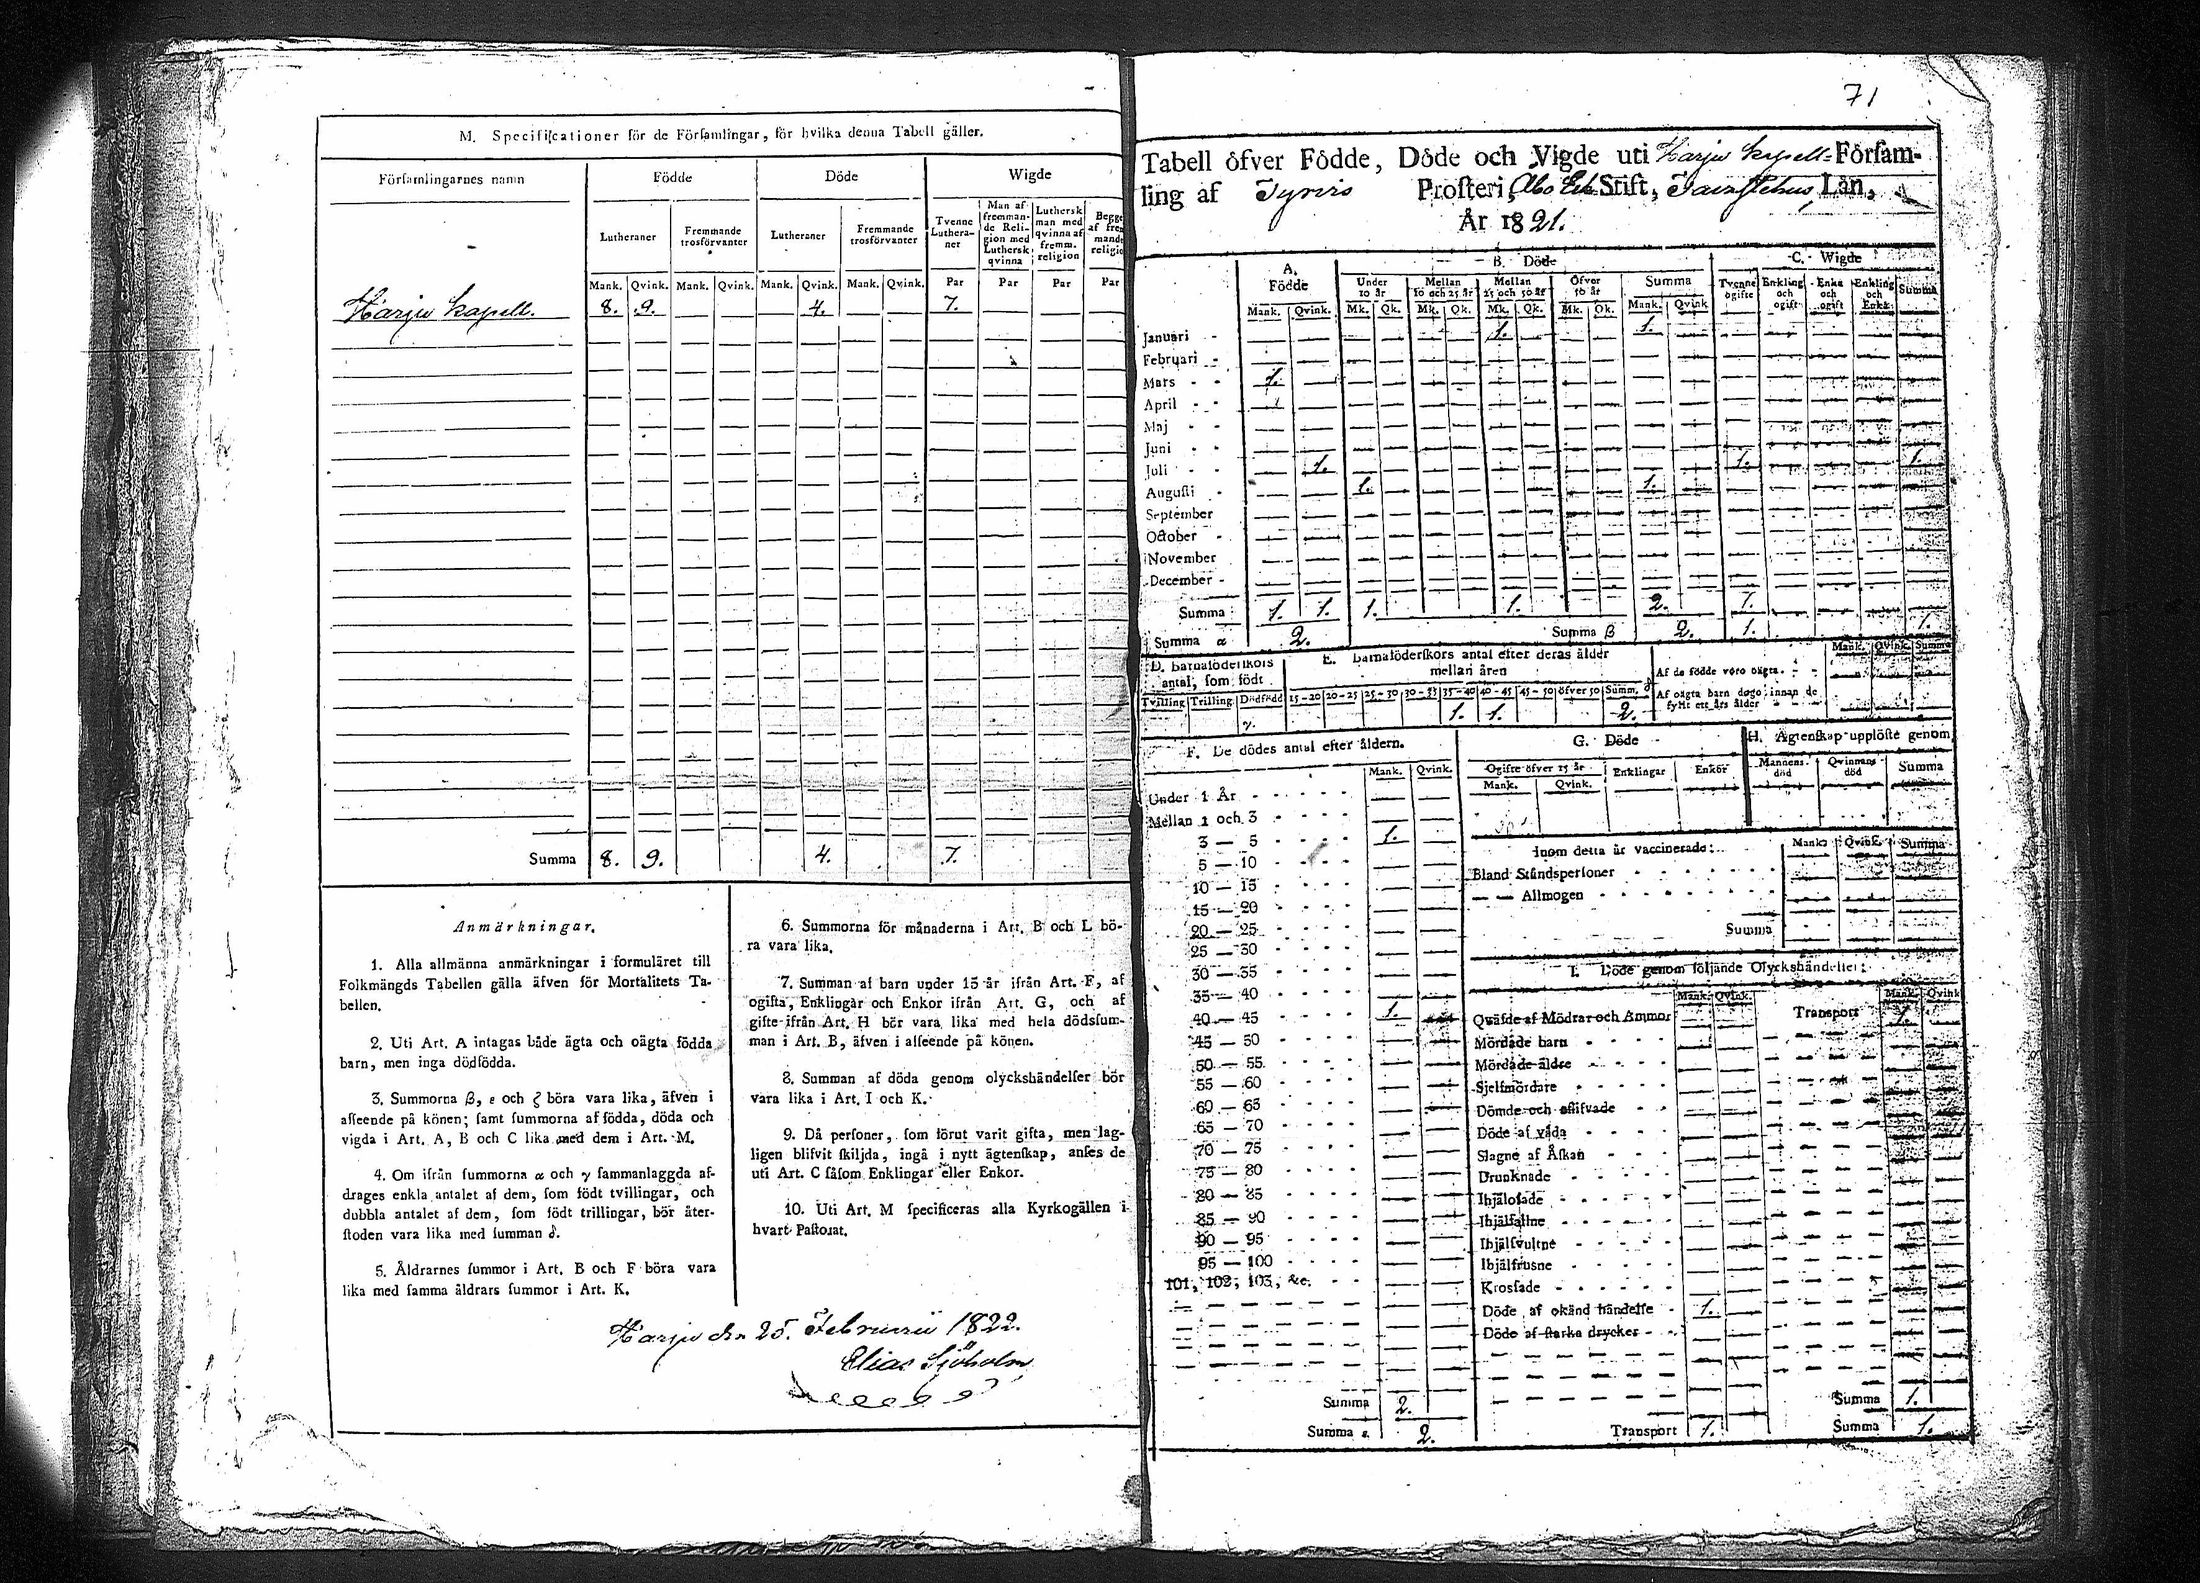 M. Specificationer för de Församlingar, för hvilka denna Tabell gäller.
Församlingarnes namn
Födde
Döde
Wigde
Lutheraner
Fremmande trosförvanter
Lutheraner
Fremmande trosförvanter
Tvenne Lutheraner
Man af fremmande Religion med Luthersk qvinna
Luthersk man med qvinna af fremm. religion
Mank. Qvink. Mank. Qvink. Mank. Qvink. Mank. Qvink. Par Par Par Par
Harju kapell. 8. 9. 4. 7.
Summa 8. 9. 4. 7.
Anmärkningar.
1. Alla allmänna anmärkningar i formuläret till
Folkmängds Tabellen gälla äfven för Mortalitets Ta-
bellen.
2. Uti Art. A intagas både ägta och oägta födda
barn, men inga dödfödda.
3. Summorna β, ε och ζ böra vara lika, äfven i
afseende på könen; samt summorna af födda, döda och
vigda i Art. A, B och C lika med dem i Art. M.
4. Om ifrån summorna α och γ sammanlaggda af-
drages enkla antalet af dem, som födt tvillingar, och
dubbla antalet af dem, som födt trillingar, bör åter-
stoden vara lika med summan δ.
5. Åldrarnes summor i Art. B och F böra vara
lika med samma åldrars summor i Art. K.
6. Summorna för månaderna i Art. B och L bö-
ra vara lika.
7. Summan af barn under 15 år ifrån Art. F, af
ogifta, Enklingar och Enkor ifrån Art. G, och af
gifte ifrån Art. H bör vara lika med hela dödssum-
man i Art. B, äfven i afseende på könen.
8. Summan af döda genom olyckshändelser bör
vara lika i Art. I och K.
9. Då personer, som förut varit gifta, men lag-
ligen blifvit skiljda, ingå i nytt ägtenskap, anses de
uti Art. C såsom Enklingar eller Enkor.
10. Uti Art. M specificeras alla Kyrkogällen i
hvart Pastorat.
Harju den 25. Februarii 1822.
Elias Sjöholm
71
Tabell öfver Födde, Döde och Vigde uti Harju kapell-Försam-
ling af Tyrvis Prosteri, Åbo Erk. Stift, Tavastehus Län,
År 1821.
A. Födde
B. Döde
C. Wigde
Under 10 år
Mellan 10 och 25 år
Mellan 25 och 50 år
Öfver 50 år
Summa
Tvenne ogifte
Enkling och ogift
Enka och ogift
Enkling och Enka
Summa
Mank. Qvink. Mk. Qk. Mk. Qk. Mk. Qk. Mk. Qk. Mank. Qvink
Januari 1. 1.
Februari
Mars 1.
April
Maj
Juni
Juli 1. 1. 1.
Augusti 1. 1.
September
October
November
December
Summa 1. 1. 1. 1. 2. 1.
Summa α 2. Summa β 2. 1. 1.
D. Barnaföderskors antal, som födt
E. Barnaföderskors antal efter deras ålder mellan åren
Mank. Qvink. Summa
Af de födde voro oägta
Af oägta barn dogo innan de fyllt ett års ålder
Tvilling Trilling Dödfödd 15-20 20-25 25-30 30-35 35-40 40-45 45-50 öfver 50 Summ. δ
γ. 1. 1. 2.
F. De dödes antal efter åldern.
Mank. Qvink.
Under 1 År
Mellan 1 och 3
3 — 5 1.
5 — 10
10 — 15
15 — 20
20 — 25
25 — 30
30 — 35
35 — 40
40 — 45 1.
45 — 50
50 — 55
55 — 60
60 — 65
65 — 70
70 — 75
75 — 80
80 — 85
85 — 90
90 — 95
95 — 100
101, 102, 103, &c.
Summa 2.
Summa ε. 2.
G. Döde
Ogifte öfver 15 år Enklingar Enkor
Mank. Qvink.
H. Ägtenskap upplöste genom
Mannens död Qvinnans död Summa
Inom detta år vaccinerade: Mank. Qvink. Summa
Bland Ståndspersoner
— — Allmogen
Summa
I. Döde genom följande Olyckshändelser:
Mank. Qvink. Mank. Qvink
Qväfde af Mödrar och Ammor Transport 1.
Mördade barn
Mördade äldre
Sjelfmördare
Dömde och aflifvade
Döde af våda
Slagne af Åskan
Drunknade
Ihjälosade
Ihjälfallne
Ihjälsvultne
Ihjälfrusne
Krossade
Döde af okänd händelse 1.
Döde af starka drycker
Summa 1.
Transport 1. Summa 1.